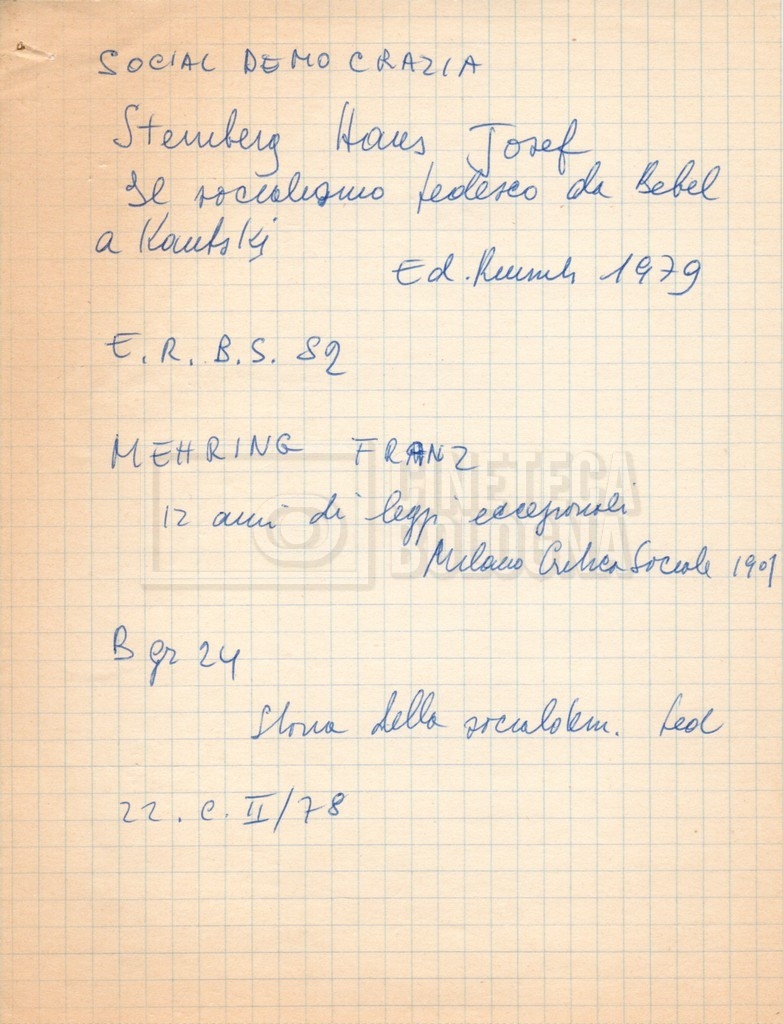 SOCIAL DEMOCRAZIA
Steinberg Hans Josef
Il socialismo tedesco da Bebel
a Kautskj
Ed. Riuniti 1979
E. R. B. S. 82
MEHRING FRANZ
12 anni di leggi eccezionali
Milano Critica Sociale 1901
B gr 24
Storia della socialdem. ted
22. C. II/78
CINETECA
BOLOGNA